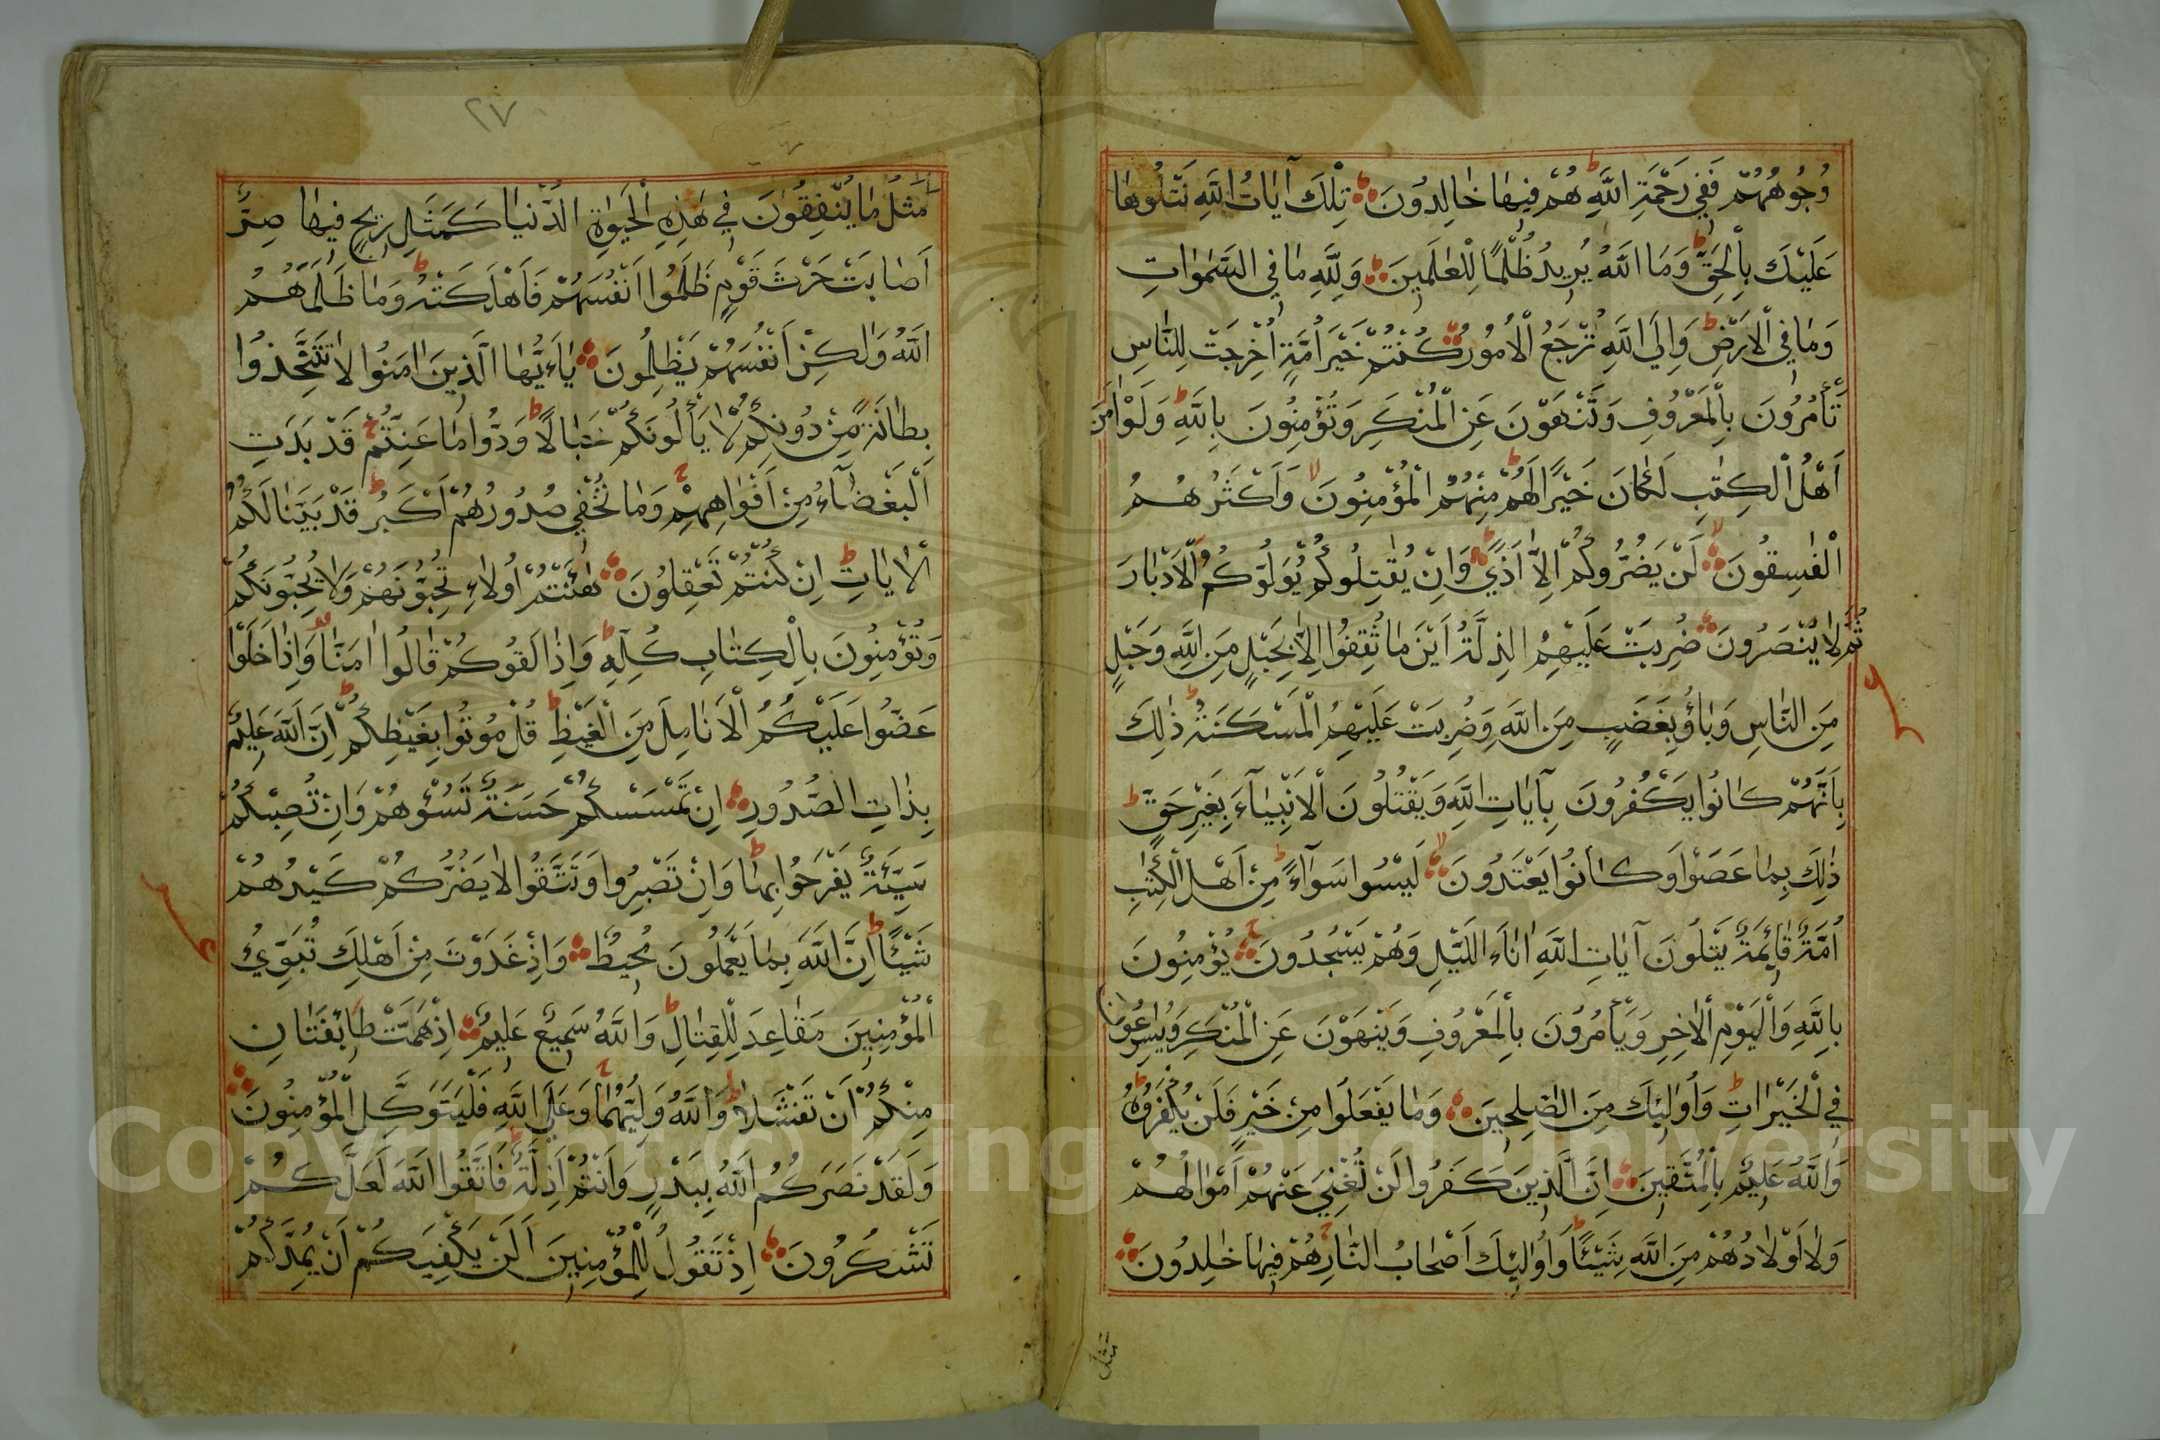 وُجُوهُهُمْ فَفِي رَحْمَةِ اللَّهِ ط هُمْ فِيهَا خَالِدُونَ تِلْكَ آيَاتُ اللَّهِ نَتْلُوهَا
عَلَيْكَ بِالْحَقِّ ط وَمَا اللَّهُ يُرِيدُ ظُلْمًا لِلْعٰلَمِينَ وَلِلَّهِ مَا فِي السَّمٰوَاتِ
وَمَا فِي الْاَرْضِ ط وَاِلَى اللَّهِ تُرْجَعُ الْاُمُورُ كُنْتُمْ خَيْرَ اُمَّةٍ اُخْرِجَتْ لِلنَّاسِ
تَأْمُرُونَ بِالْمَعْرُوفِ وَتَنْهَوْنَ عَنِ الْمُنْكَرِ وَتُؤْمِنُونَ بِاللَّهِ ط وَلَوْ اٰمَنَ
اَهْلُ الْكِتٰبِ لَكَانَ خَيْرًا لَهُمْ ط مِنْهُمُ الْمُؤْمِنُونَ لا وَاَكْثَرُهُمُ
الْفٰسِقُونَ لَنْ يَضُرُّوكُمْ اِلَّا اَذًى ط وَاِنْ يُقٰتِلُوكُمْ يُوَلُّوكُمُ الْاَدْبَارَ
ثُمَّ لَا يُنْصَرُونَ ضُرِبَتْ عَلَيْهِمُ الذِّلَّةُ اَيْنَ مَا ثُقِفُوا اِلَّا بِحَبْلٍ مِنَ اللَّهِ وَحَبْلٍ
مِنَ النَّاسِ وَبَاؤُ بِغَضَبٍ مِنَ اللَّهِ وَضُرِبَتْ عَلَيْهِمُ الْمَسْكَنَةُ ط ذٰلِكَ
بِاَنَّهُمْ كَانُوا يَكْفُرُونَ بِآيَاتِ اللَّهِ وَيَقْتُلُونَ الْاَنْبِيَآءَ بِغَيْرِ حَقٍّ ط
ذٰلِكَ بِمَا عَصَوْا وَكَانُوا يَعْتَدُونَ لَيْسُوا سَوَآءً ط مِنْ اَهْلِ الْكِتٰبِ
اُمَّةٌ قَائِمَةٌ يَتْلُونَ آيَاتِ اللَّهِ اٰنَاءَ اللَّيْلِ وَهُمْ يَسْجُدُونَ يُؤْمِنُونَ
بِاللَّهِ وَالْيَوْمِ الْاٰخِرِ وَيَأْمُرُونَ بِالْمَعْرُوفِ وَيَنْهَوْنَ عَنِ الْمُنْكَرِ وَيُسٰرِعُونَ
فِي الْخَيْرَاتِ ط وَاُولٰئِكَ مِنَ الصّٰلِحِينَ وَمَا يَفْعَلُوا مِنْ خَيْرٍ فَلَنْ يُكْفَرُوهُ ط
وَاللَّهُ عَلِيمٌ بِالْمُتَّقِينَ اِنَّ الَّذِينَ كَفَرُوا لَنْ تُغْنِيَ عَنْهُمْ اَمْوَالُهُمْ
وَلَا اَوْلَادُهُمْ مِنَ اللَّهِ شَيْئًا ط وَاُولٰئِكَ اَصْحَابُ النَّارِ ج هُمْ فِيهَا خٰلِدُونَ
مثل
٢٧
مَثَلُ مَا يُنْفِقُونَ فِي هٰذِهِ الْحَيٰوةِ الدُّنْيَا كَمَثَلِ رِيحٍ فِيهَا صِرٌّ
اَصَابَتْ حَرْثَ قَوْمٍ ظَلَمُوا اَنْفُسَهُمْ فَاَهْلَكَتْهُ ط وَمَا ظَلَمَهُمُ
اللَّهُ وَلٰكِنْ اَنْفُسَهُمْ يَظْلِمُونَ يَاءَيُّهَا الَّذِينَ اٰمَنُوا لَا تَتَّخِذُوا
بِطَانَةً مِنْ دُونِكُمْ لَا يَأْلُونَكُمْ خَبَالًا ط وَدُّوا مَا عَنِتُّمْ ج قَدْ بَدَتِ
الْبَغْضَآءُ مِنْ اَفْوَاهِهِمْ ج وَمَا تُخْفِي صُدُورُهُمْ اَكْبَرُ ط قَدْ بَيَّنَّا لَكُمُ
الْاٰيَاتِ ط اِنْ كُنْتُمْ تَعْقِلُونَ هٰئَنْتُمْ اُولَاءِ تُحِبُّونَهُمْ وَلَا يُحِبُّونَكُمْ
وَتُؤْمِنُونَ بِالْكِتَابِ كُلِّهِ ط وَاِذَا لَقُوكُمْ قَالُوا اٰمَنَّا وَاِذَا خَلَوْا
عَضُّوا عَلَيْكُمُ الْاَنَامِلَ مِنَ الْغَيْظِ ط قُلْ مُوتُوا بِغَيْظِكُمْ ط اِنَّ اللَّهَ عَلِيمٌ
بِذَاتِ الصُّدُورِ اِنْ تَمْسَسْكُمْ حَسَنَةٌ تَسُؤْهُمْ وَاِنْ تُصِبْكُمْ
سَيِّئَةٌ يَفْرَحُوا بِهَا ط وَاِنْ تَصْبِرُوا وَتَتَّقُوا لَا يَضُرُّكُمْ كَيْدُهُمْ
شَيْئًا ط اِنَّ اللَّهَ بِمَا يَعْمَلُونَ مُحِيطٌ وَاِذْ غَدَوْتَ مِنْ اَهْلِكَ تُبَوِّئُ
الْمُؤْمِنِينَ مَقَاعِدَ لِلْقِتَالِ ط وَاللَّهُ سَمِيعٌ عَلِيمٌ اِذْ هَمَّتْ طَائِفَتَانِ
مِنْكُمْ اَنْ تَفْشَلَا ط وَاللَّهُ وَلِيُّهُمَا ج وَعَلَى اللَّهِ فَلْيَتَوَكَّلِ الْمُؤْمِنُونَ
وَلَقَدْ نَصَرَكُمُ اللَّهُ بِبَدْرٍ وَاَنْتُمْ اَذِلَّةٌ ج فَاتَّقُوا اللَّهَ لَعَلَّكُمْ
تَشْكُرُونَ اِذْ تَقُولُ لِلْمُؤْمِنِينَ اَلَنْ يَكْفِيَكُمْ اَنْ يُمِدَّكُمْ
Copyright © King Saud University